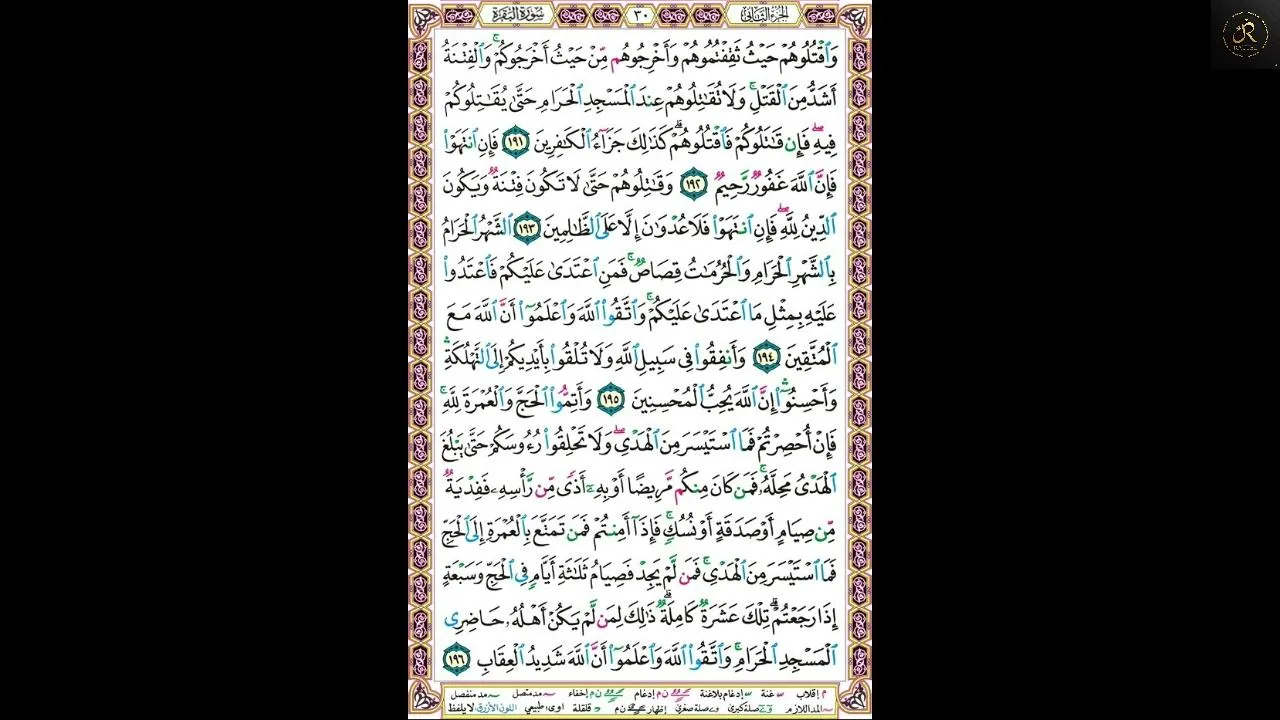 سُورَةُ البَقَرَة ٣٠ الجُزءُ الثَّانِي
وَٱقْتُلُوهُمْ حَيْثُ ثَقِفْتُمُوهُمْ وَأَخْرِجُوهُم مِّنْ حَيْثُ أَخْرَجُوكُمْ ۚ وَٱلْفِتْنَةُ
أَشَدُّ مِنَ ٱلْقَتْلِ ۚ وَلَا تُقَٰتِلُوهُمْ عِندَ ٱلْمَسْجِدِ ٱلْحَرَامِ حَتَّىٰ يُقَٰتِلُوكُمْ
فِيهِ ۖ فَإِن قَٰتَلُوكُمْ فَٱقْتُلُوهُمْ ۗ كَذَٰلِكَ جَزَآءُ ٱلْكَٰفِرِينَ ١٩١ فَإِنِ ٱنتَهَوْا۟
فَإِنَّ ٱللَّهَ غَفُورٌ رَّحِيمٌ ١٩٢ وَقَٰتِلُوهُمْ حَتَّىٰ لَا تَكُونَ فِتْنَةٌ وَيَكُونَ
ٱلدِّينُ لِلَّهِ ۖ فَإِنِ ٱنتَهَوْا۟ فَلَا عُدْوَٰنَ إِلَّا عَلَى ٱلظَّٰلِمِينَ ١٩٣ ٱلشَّهْرُ ٱلْحَرَامُ
بِٱلشَّهْرِ ٱلْحَرَامِ وَٱلْحُرُمَٰتُ قِصَاصٌ ۚ فَمَنِ ٱعْتَدَىٰ عَلَيْكُمْ فَٱعْتَدُوا۟
عَلَيْهِ بِمِثْلِ مَا ٱعْتَدَىٰ عَلَيْكُمْ ۚ وَٱتَّقُوا۟ ٱللَّهَ وَٱعْلَمُوٓا۟ أَنَّ ٱللَّهَ مَعَ
ٱلْمُتَّقِينَ ١٩٤ وَأَنفِقُوا۟ فِى سَبِيلِ ٱللَّهِ وَلَا تُلْقُوا۟ بِأَيْدِيكُمْ إِلَى ٱلتَّهْلُكَةِ ۛ
وَأَحْسِنُوٓا۟ ۛ إِنَّ ٱللَّهَ يُحِبُّ ٱلْمُحْسِنِينَ ١٩٥ وَأَتِمُّوا۟ ٱلْحَجَّ وَٱلْعُمْرَةَ لِلَّهِ ۚ
فَإِنْ أُحْصِرْتُمْ فَمَا ٱسْتَيْسَرَ مِنَ ٱلْهَدْىِ ۖ وَلَا تَحْلِقُوا۟ رُءُوسَكُمْ حَتَّىٰ يَبْلُغَ
ٱلْهَدْىُ مَحِلَّهُۥ ۚ فَمَن كَانَ مِنكُم مَّرِيضًا أَوْ بِهِۦٓ أَذًى مِّن رَّأْسِهِۦ فَفِدْيَةٌ
مِّن صِيَامٍ أَوْ صَدَقَةٍ أَوْ نُسُكٍ ۚ فَإِذَآ أَمِنتُمْ فَمَن تَمَتَّعَ بِٱلْعُمْرَةِ إِلَى ٱلْحَجِّ
فَمَا ٱسْتَيْسَرَ مِنَ ٱلْهَدْىِ ۚ فَمَن لَّمْ يَجِدْ فَصِيَامُ ثَلَٰثَةِ أَيَّامٍ فِى ٱلْحَجِّ وَسَبْعَةٍ
إِذَا رَجَعْتُمْ ۗ تِلْكَ عَشَرَةٌ كَامِلَةٌ ۗ ذَٰلِكَ لِمَن لَّمْ يَكُنْ أَهْلُهُۥ حَاضِرِى
ٱلْمَسْجِدِ ٱلْحَرَامِ ۚ وَٱتَّقُوا۟ ٱللَّهَ وَٱعْلَمُوٓا۟ أَنَّ ٱللَّهَ شَدِيدُ ٱلْعِقَابِ ١٩٦
م إقلاب غنة إدغام بلاغنة ن م إدغام ن م إخفاء مد متصل مد منفصل
المد اللازم صلة كبرى صلة صغرى إظهار ن م قلقلة طبيعي اللون الأزرق لا يلفظ